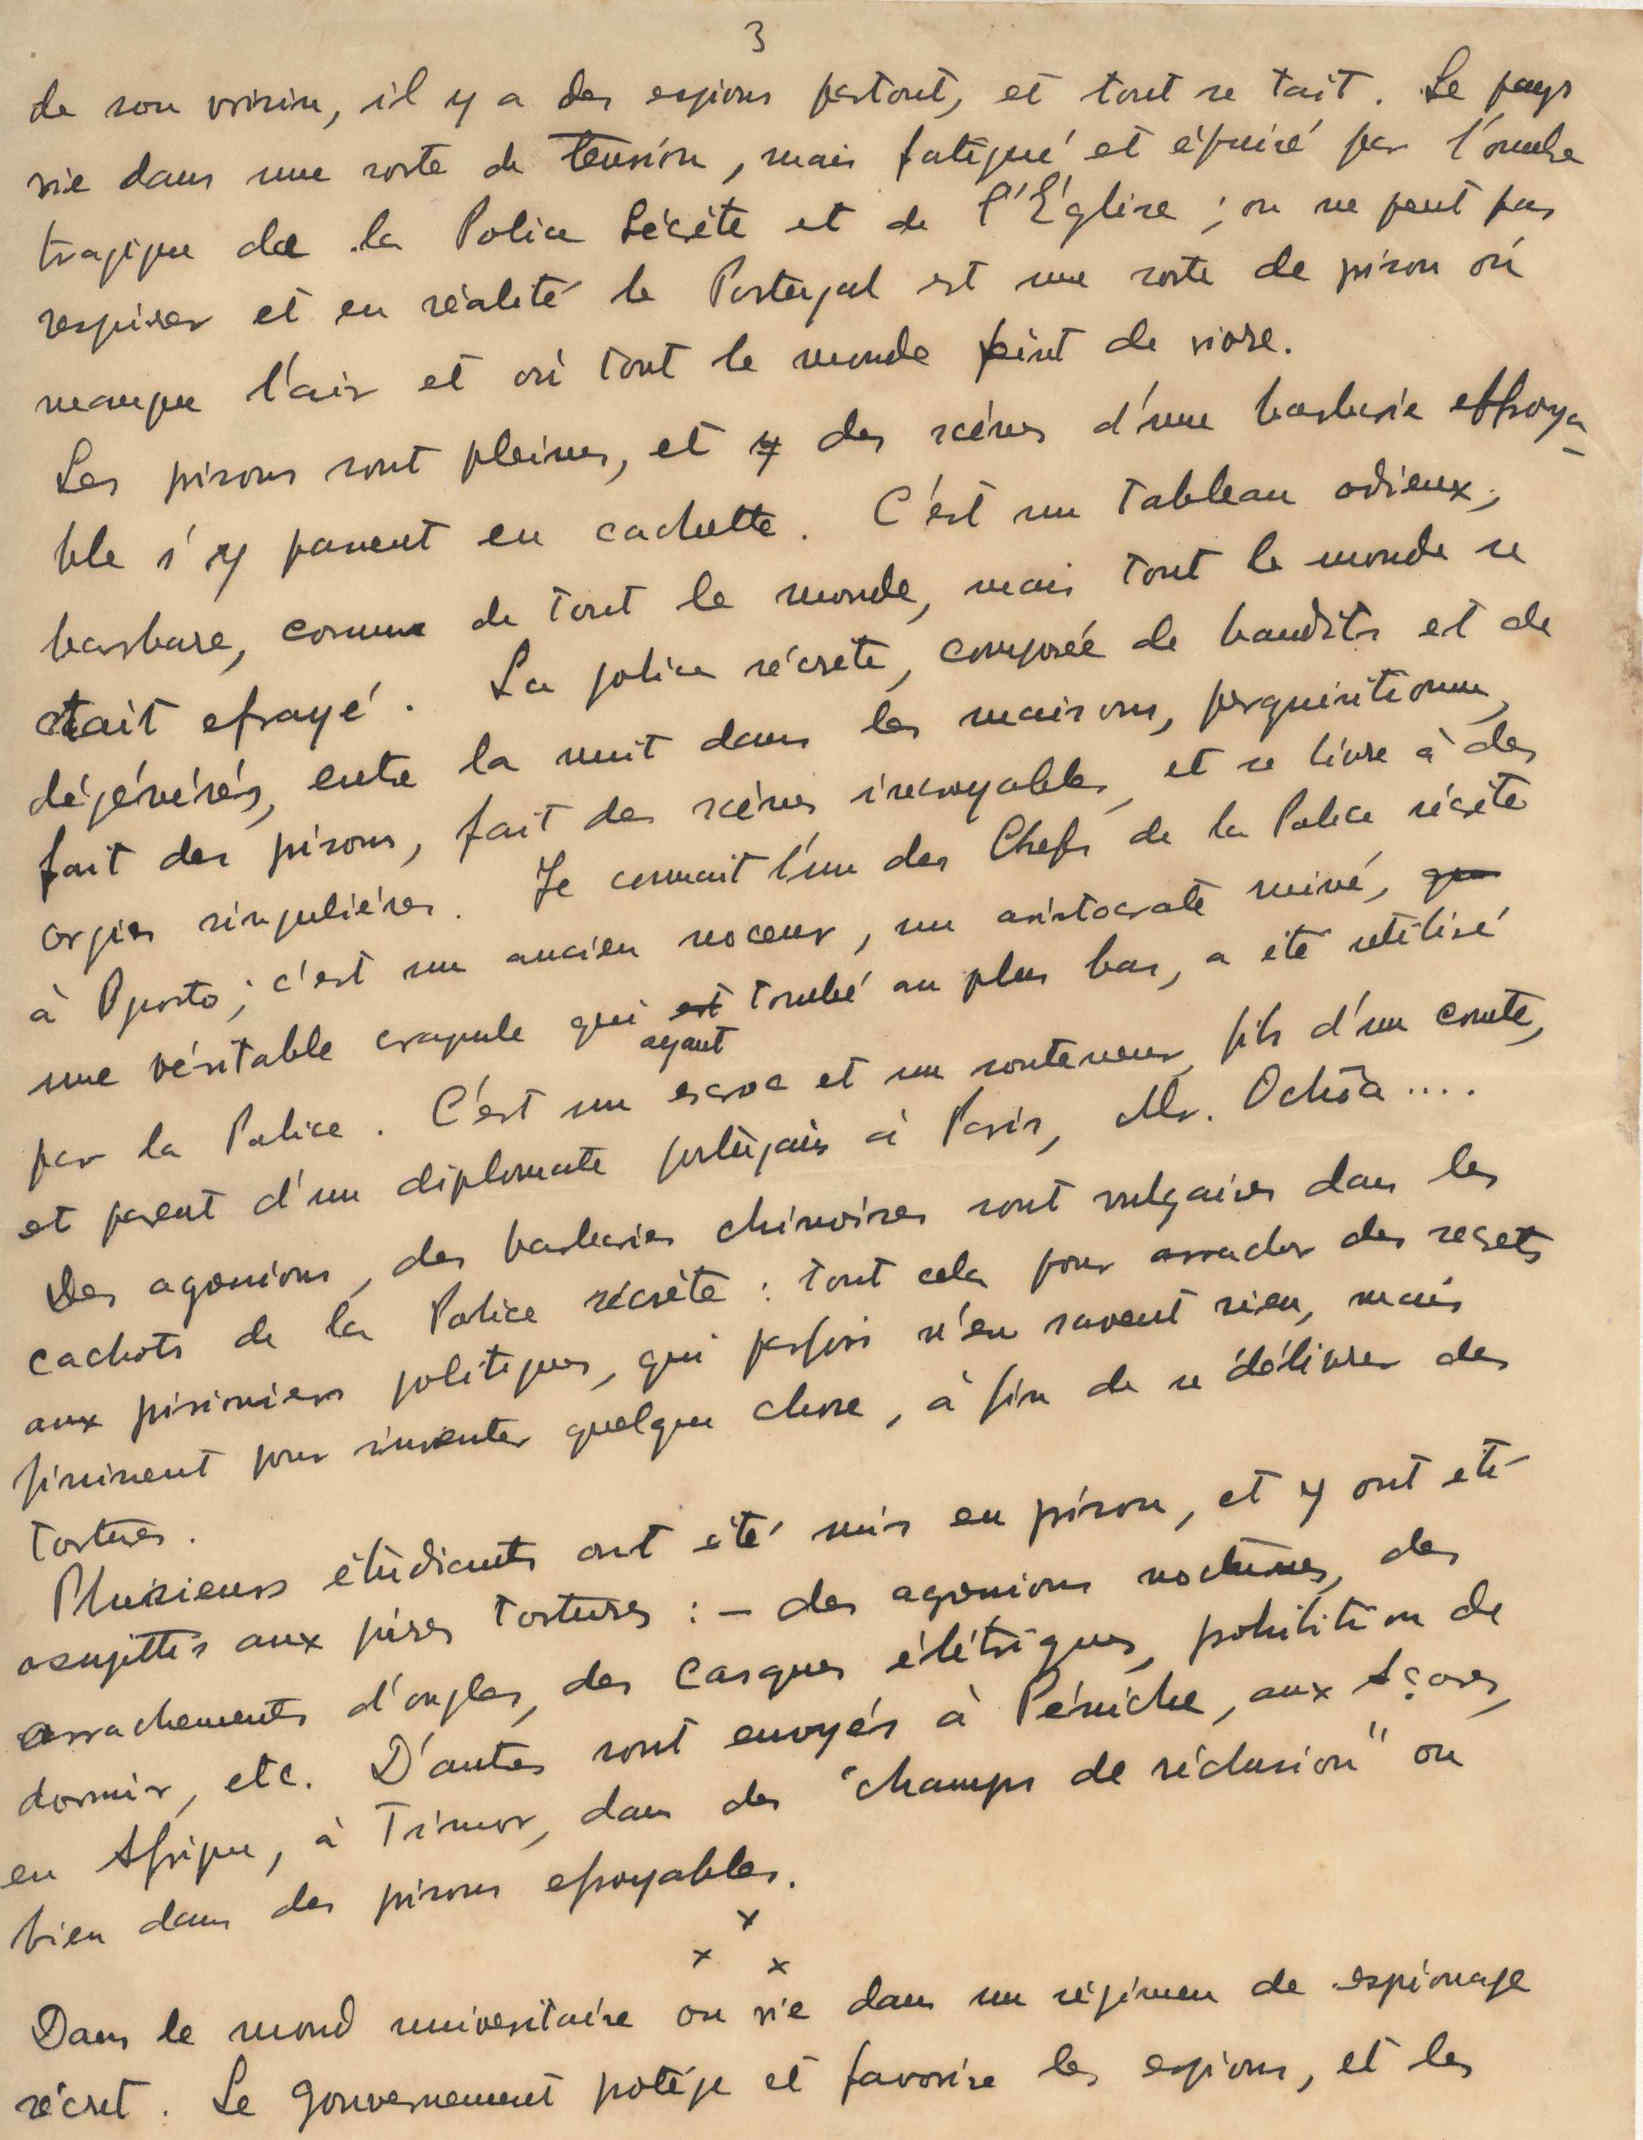 3
de son voisin, il y a des espions partout, et tout se tait. Le pays
vie dans une sorte de tension, mais fatigué et épuisé par l'ombre
tragique de la Police Sécrète et de l'Église ; on ne peut pas
respirer et en réalité le Portugal est une sorte de prison où
manque l'air et où tout le monde feint de vivre.
Les prisons sont pleines, et des scénes d'une barbarie effroya-
ble s'y passent en cachette. C'est un tableau odieux,
barbare, connu de tout le monde, mais tout le monde se
tait efrayé. La police sécrète, composée de bandits et de
dégénérés, entre la nuit dans les maisons, perquisitionne,
fait des prisons, fait des scénes incroyables, et se livre à des
orgies singuliéres. Je connait l'un des Chefs de la Police sécrète
à Oporto ; c'est un ancien noceur, un aristocrate ruiné,
une véritable crapule qui ayant tombé au plus bas, a été utilisé
par la Police. C'est un escroc et un souteneur, fils d'un comte,
et parent d'un diplomate portugais à Paris, Mr. Ochôa ....
Des agressions, des barbaries chinoises sont vulgaires dans les
cachots de la Police sécrète : tout cela pour arracher des secrets
aux prisioniers politiques, qui parfois n'en savent rien, mais
finissent pour inventer quelque chose, à fin de se délivrer des
tortures.
Plusieurs étudiants ont été mis en prison, et y ont été
assujettis aux pires tortures : — des agressions nocturnes, des
arrachements d'ongles, des casques élétriques, prohibition de
dormir, etc. D'autres sont envoyés à Péniche, aux Açores,
en Afrique, à Timor, dans des "champs de réclusion" ou
bien dans des prisons efroyables.
x
x x
Dans le mond universitaire on vie dans un régimen de espionage
sécret. Le gouvernement protége et favorise les espions, et les